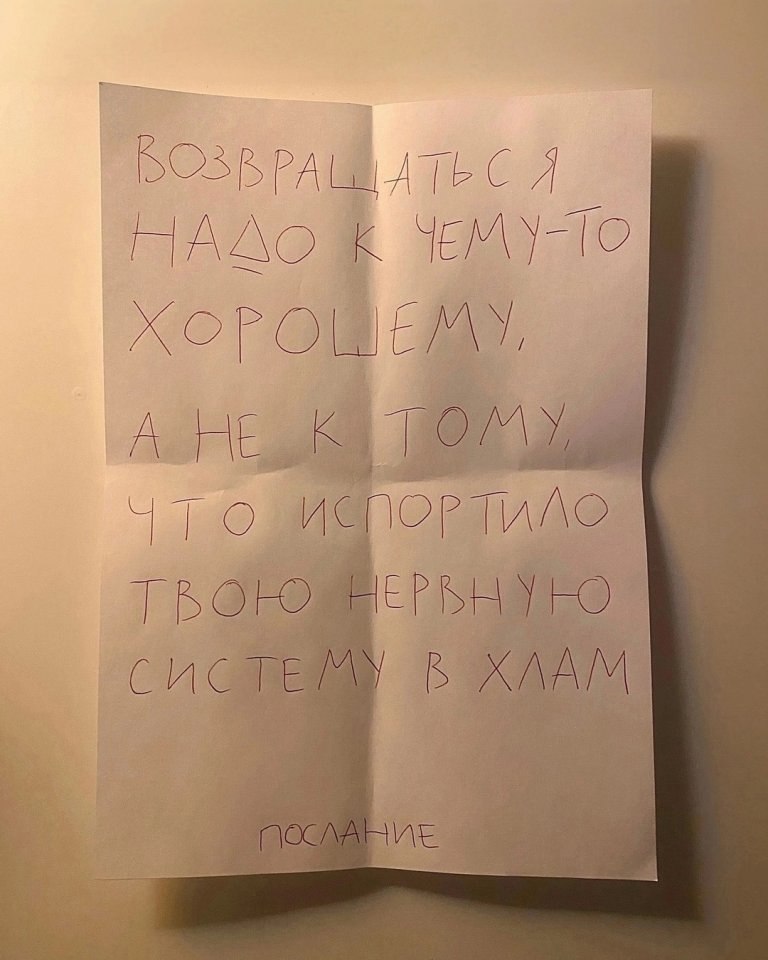 ВОЗВРАЩАТЬСЯ
НАДО К ЧЕМУ-ТО
ХОРОШЕМУ,
А НЕ К ТОМУ,
ЧТО ИСПОРТИЛО
ТВОЮ НЕРВНУЮ
СИСТЕМУ В ХЛАМ
ПОСЛАНИЕ